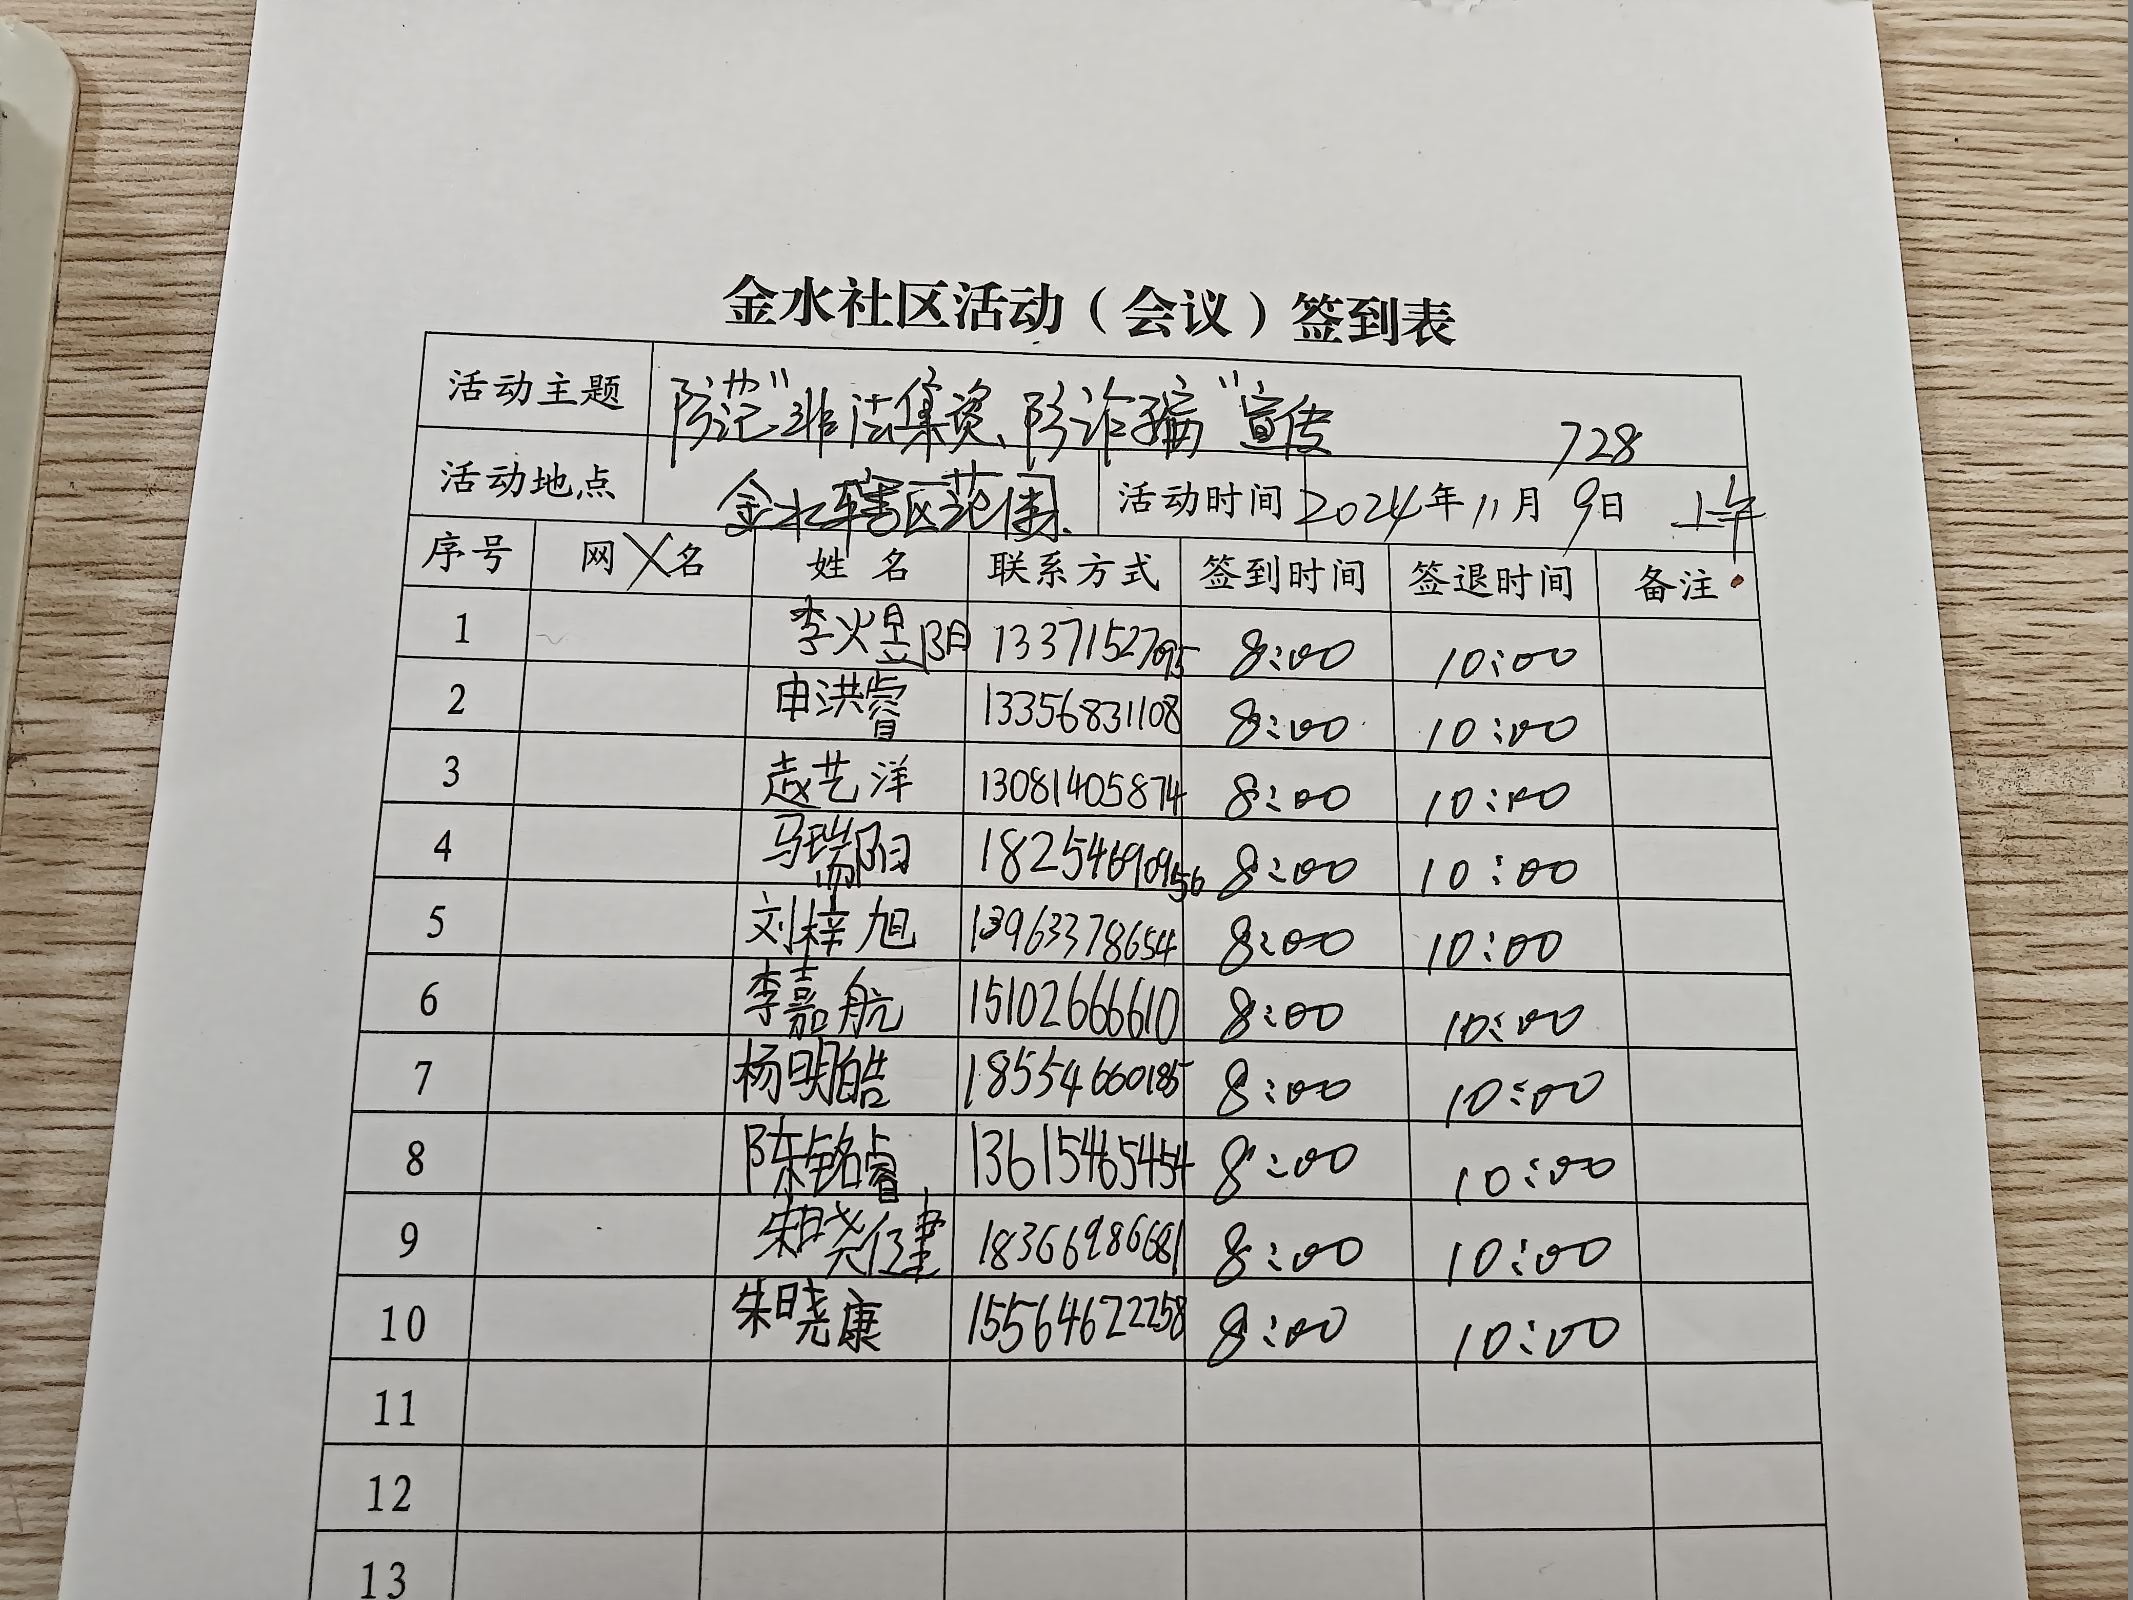 金水社区活动（会议）签到表
活动主题 防范"非法集资、防诈骗"宣传 728
活动地点 金水辖区范围 活动时间 2024年11月9日 上午
序号 网 名 姓名 联系方式 签到时间 签退时间 备注
1 李火昱阳 13371527095 8:00 10:00
2 申洪睿 13356831108 8:00 10:00
3 赵艺洋 13081405874 8:00 10:00
4 马瑞阳 18254690956 8:00 10:00
5 刘梓旭 13963378654 8:00 10:00
6 李嘉航 15102666610 8:00 10:00
7 杨明皓 18554660185 8:00 10:00
8 陈铭睿 13615465454 8:00 10:00
9 朱晓健 18366986681 8:00 10:00
10 朱晓康 15564622258 8:00 10:00
11
12
13